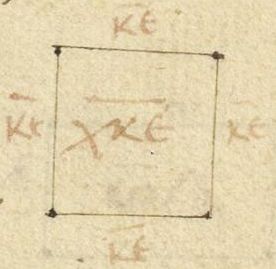 κε
κε χκε κε
κε